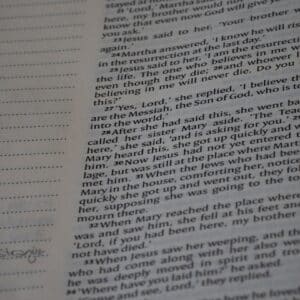 stayed at home.
21 'Lord,' Martha said
here, my brother would not
know that even now God will give you
you ask.'
23 Jesus said to her, 'Your brother w
again.'
24 Martha answered, 'I know he will rise
in the resurrection at the last day.'
25 Jesus said to her,
the life. The one who believes in me w
even though they die; 26 and whoever l
believing in me will never die. Do you
this?'
27 'Yes, Lord,' she replied, 'I believe th
are the Messiah, the Son of God, who is to
into the world.'
28 After she had said this, she went ba
called her sister Mary aside. 'The Tea
here,' she said, 'and is asking for you.' 29
Mary heard this, she got up quickly and w
him. 30 Now Jesus had not yet entered th
lage, but was still at the place where Mart
met him. 31 When the Jews who had been
Mary in the house, comforting her, notice
quickly she got up and went out, they fol
her, supposing she was going to the to
mourn there.
32 When Mary reached the place where
was and saw him, she fell at his feet and
'Lord, if you had been here, my brother
not have died.'
33 When Jesus saw her weeping, and th
who had come along with her also wee
he was deeply moved in spirit and tro
34 'Where have you laid him?' he asked.
'Come and see, Lord,' they replied.